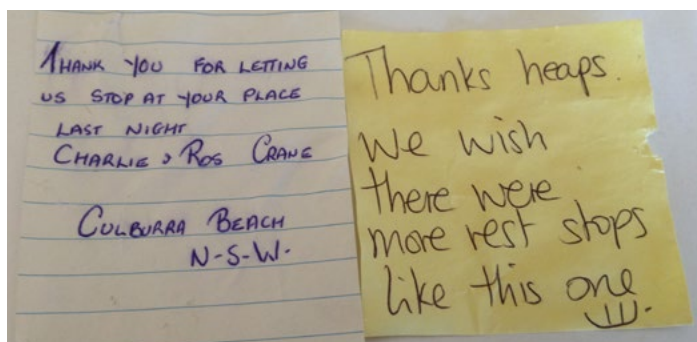 THANK YOU FOR LETTING
US STOP AT YOUR PLACE
LAST NIGHT
CHARLIE & ROS CRANE
CULBURRA BEACH
N-S-W-
Thanks heaps.
We wish
there were
more rest stops
like this one